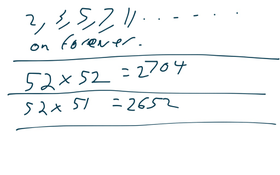 2, 3, 5, 7, 11 . . . . . . .
on forever.
52 × 52 = 2704
52 × 51 = 2652